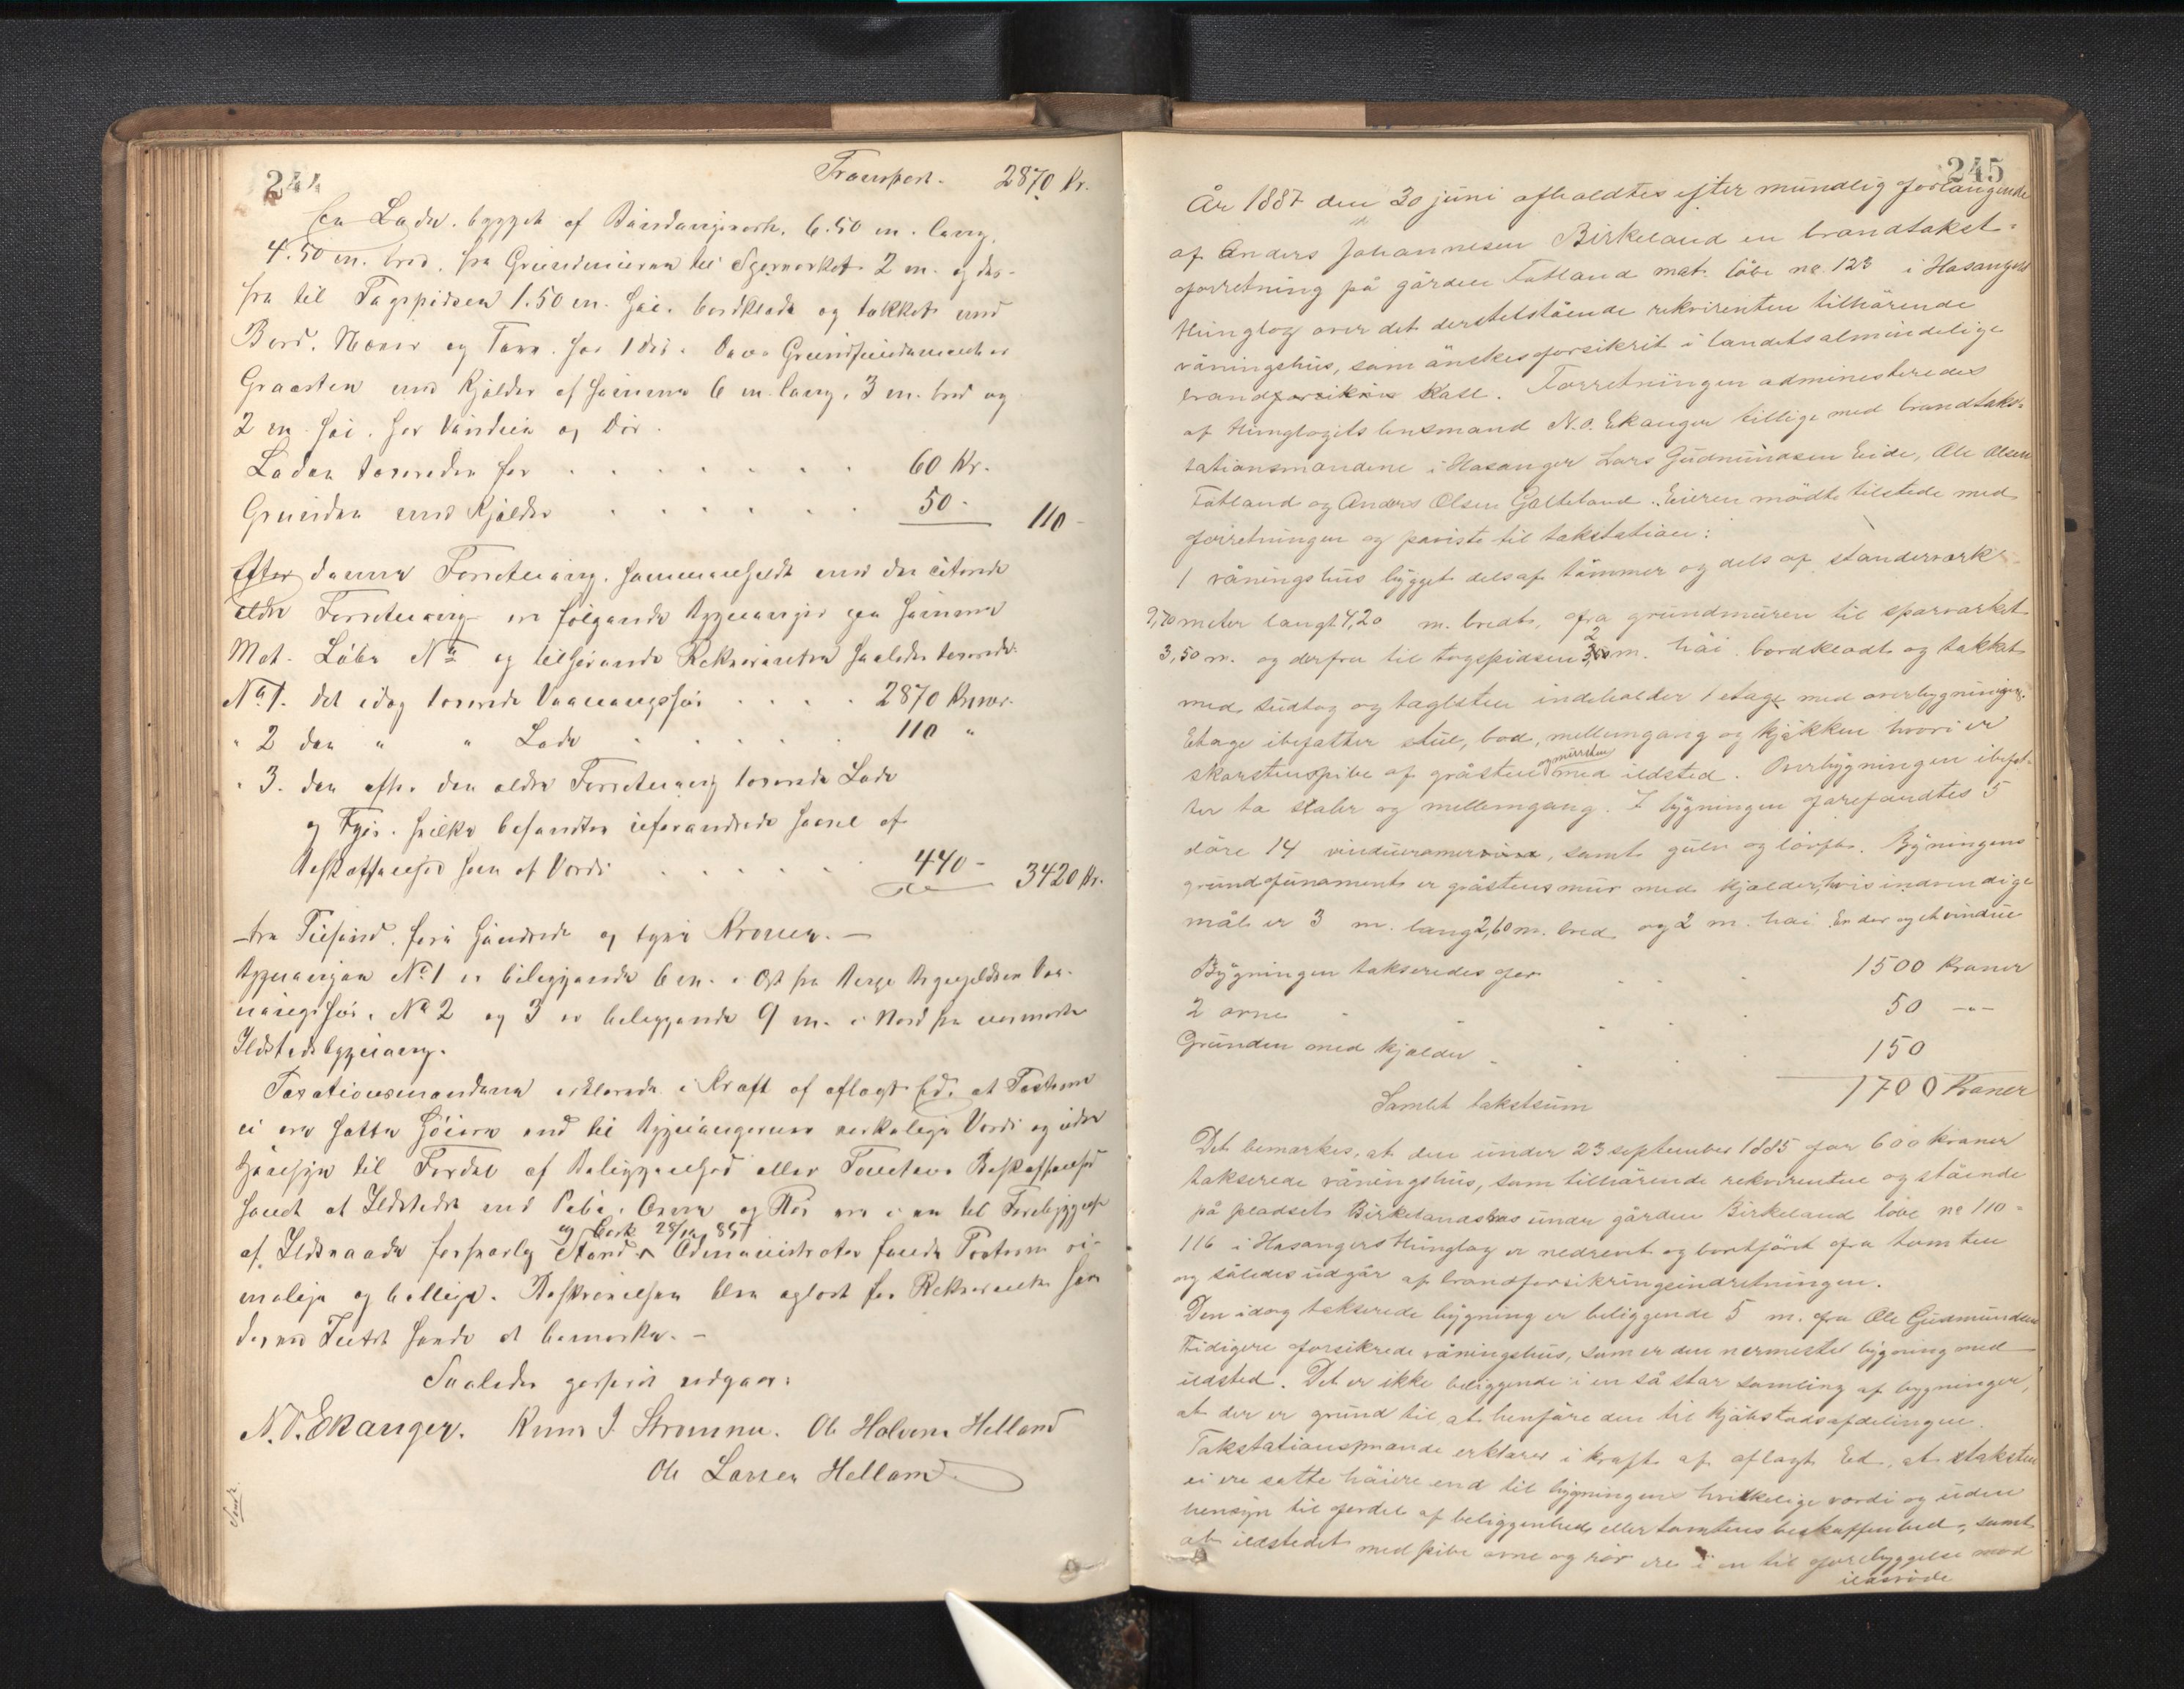 244
Transport. 2870 Kr.
En Lade. bygget af Bindingsverk. 6.50 m. lang,
4.50 m. bred. fra Grundmuren til Sperverket 2 m. og der-
fra til Tagspidsen 1.50 m. høi. bordklædt og tækket med
Bord. Næver og Torv. har 1 Dør. Grundfundamentet er
Graasten med Kjelder af Hamme 6 m. lang, 3 m. bred og
2 m høi. har Vindue og Dør.
Laden taxeredes for . . . . . . 60 Kr.
Grunden med Kjelder . . . . . . 50 - 110 -
Efter denne Forretning. sammenholdt med den citerede
ældre Forretning er følgende Bygninger paa samme
Mat. Løbe No og tilhørende Rekvirenten saaledes taxerede:
No 1. det idag taxerede Vaaningshus . . . . 2870 Kroner.
" 2 den " " Lade . . . . . 110 "
" 3. den efter den ældre Forretning taxerede Lade
og Fjøs. hvilke befandtes uforandrede saavel af
Beskaffenhed som af Værdi . . . . . 440 - 3420 Kr.
-tre Tusind. fire Hundrede og tyve Kroner. -
Bygningen No 1 er beliggende 6 m. i Øst fra
No 2 og 3 er beliggende 9 m. i Nord fra nærmeste
Ildstedsbygning.
Taxationsmændene erklærede i Kraft af aflagt Ed, at Taxterne
ei ere satte høiere end til Bygningernes verkelige Værdi og uden
Hensyn til Fordel af Beliggenhed eller Tomtens Beskaffenhed
samt at Ildstedet med Pibe. Ovne og Rør ere i en til Forebyggelse
af Ildsvaade forsvarlig Stand. Administrator fandt Taxterne ri-
melige og billige. Beskrivelsen blev oplæst for Rekvirenten som
dermed Intet havde at bemærke. -
Saaledes passeret udgaar:
N. O. Ekanger. Knut J. Strømme. Ole Halvors Helland
Ole Larsen Helland
245
År 1887 den 30 juni afholdtes efter mundlig forlangende
af Anders Johannesen Birkeland en brandtakst-
forretning på gården Fatland mat. løbe no. 123 i Hasanger
thinglag over det derstelstående rekvirenten tilhørende
våningshus, som ønskes forsikrit i landets almindelige
brandforsikrin Kase. Forretningen administeredes
af thinglagets lensmand N. O. Ekanger tillige med brandtaks-
tationsmændene i Hasanger Lars Gudmundsen Eide, Ole Olsen
Fatland og Anders Olsen Galteland. Eieren mødte tilstede med
forretningen og paviste til takstation:
1 våningshus bygget dels af tømmer og dels af standerværk
9,70 meter langt 4,20 m. bredt, fra grundmuren til sparværket
3,50 m. og derfra til tagspidsen 2 m. høi. bordklædt og tækket
med sudtag og taglsten indeholder 1 etage med overbygning.
Etage ibefatter stue, bod, mellemgang og kjøkken hvori er
skorstenspibe af gråsten og mursten med ildsted. Overbygningen ibefat-
ter to staler og mellemgang. I bygningen forefandtes 5
døre 14 vinduesramer, samt gulv og lofter. Bygningens
grundfunament er gråstensmur med kjælder, hvis indvendige
mål er 3 m. lang 2,60 m. bred og 2 m. høi. En dør og et vindue
Bygningen takseredes for . . . 1500 Kroner
2 ovne . . . . . 50 -"-
Grunden med kjælder . . . 150
Samlet takstsum 1700 Kroner
Det bemærkes, at den under 23 september 1885 for 600 kroner
takserede våningshus, som tilhørende rekvirenten og stående
på pladsen Birkelandsnes under gården Birkeland løbe no 110-
116 i Hasangers thinglag er nedrevet og bortført fra tomten
og således udgår af brandforsikringsindretningen.
Den idag takserede bygning er beliggende 5 m. fra Ole Gudmundsen
Tidigere forsikrede våningshus, som er den nermestel bygning med
ildsted. Det er ikke beliggende i en så stor samling af bygninger,
at der er grund til, at henføre den til kjøbstadsafdelingen.
Takstationsmænde erklærer i kraft af aflagt Ed, at taksten
ei ere satte høiere end til bygningens hvirkelige værdi og uden
hensyn til fordel af beliggenhed eller tomtens beskaffenhed, samt
at ildstedet med pibe ovne og rør ere i en til forebyggelse mod
ildsvåde